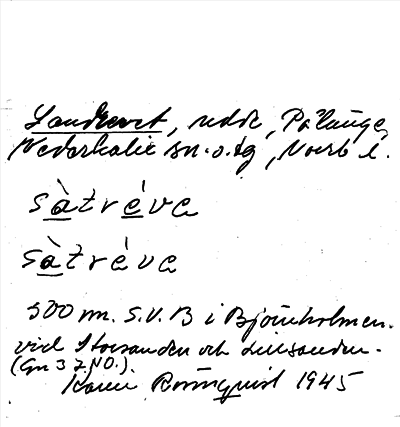 Sandrevet, udde, Pålänge,
Nederkalix sn. o. tg, Norrb l.
sàtréva
sàtréva
500 m. S.V. B i Björnholmen.
vid Storsanden och Lillsanden.
(Gn 3 7 NO.).
Karin Rosenquist 1945